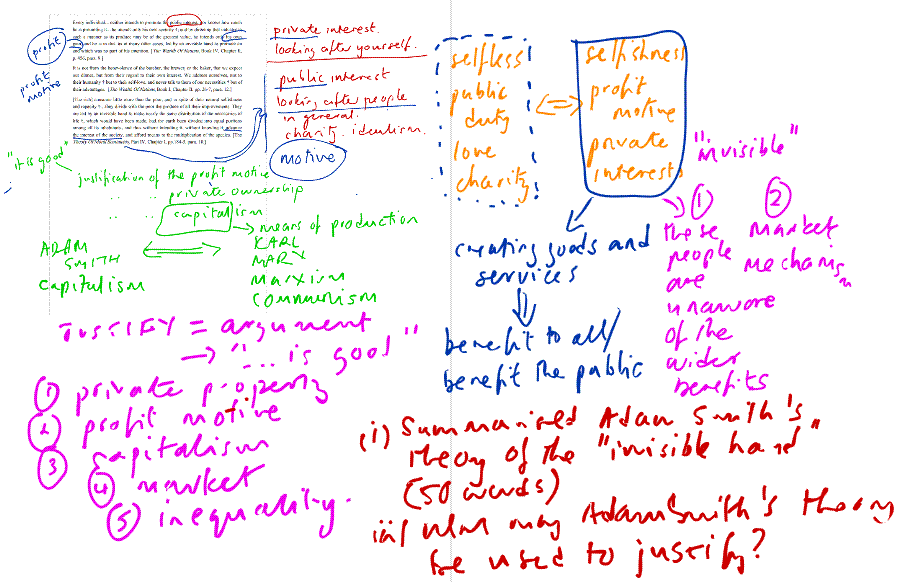 Every individual neither intends to promote the public interest, nor knows how much
he is promoting it he intends only his own security; and by directing that industry in
such a manner as its produce may be of the greatest value, he intends only his own
gain, and he is in this, as in many other cases, led by an invisible hand to promote an
end which was no part of his intention. [The Wealth Of Nations, Book IV, Chapter II,
p. 456, para. 9.]
It is not from the benevolence of the butcher, the brewer, or the baker, that we expect
our dinner, but from their regard to their own interest. We address ourselves, not to
their humanity but to their self-love, and never talk to them of our necessities but of
their advantages. [The Wealth Of Nations, Book I, Chapter II, pp. 26-7, para. 12.]
[The rich] consume little more than the poor, and in spite of their natural selfishness
and rapacity they divide with the poor the produce of all their improvements. They
are led by an invisible hand to make nearly the same distribution of the necessaries of
life, which would have been made, had the earth been divided into equal portions
among all its inhabitants, and thus without intending it, without knowing it, advance
the interest of the society, and afford means to the multiplication of the species. [The
Theory Of Moral Sentiments, Part IV, Chapter I, pp. 184-5, para. 10.]
profit
profit
motive
private interest.
looking after yourself.
public interest
looking after people
in general.
charity. idealism.
motive
selfless
public
duty
love
charity
selfishness
profit
motive
private
interests
"invisible"
① these
people
are
unaware
of the
wider
benefits
② market
mechanism
"it is good"
justification of the profit motive
.. .. private ownership
.. .. capitalism
means of production
ADAM
SMITH
Capitalism
KARL
MARX
Marxism
Communism
creating goods and
services
benefit to all/
benefit the public
JUSTIFY = argument
→ "... is good"
① private property
② profit motive
③ capitalism
④ market
⑤ inequality.
(i) Summarised Adam Smith's
theory of the "invisible hand"
(50 words)
ii/ may Adam Smith's theory
be used to justify?